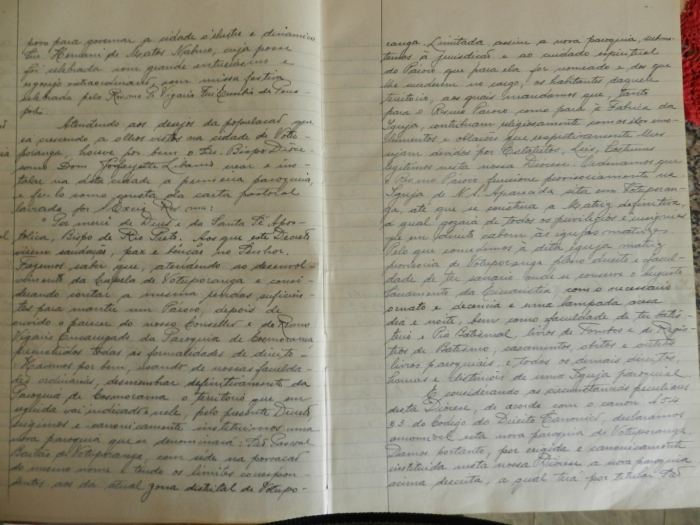 povo para governar a cidade o ilustre e dinâmico
Snr. Hernani de Matos Nabuco, cuja posse
foi celebrada com grande entusiasmo e
regosijo extraordinario, com missa festiva
celebrada pelo Revmo Pe Vigario Frei
Atendendo aos desejos da população que
ia crescendo a olhos vistos na cidade de Votu-
poranga, houve por bem o Snr. Bispo Dioce-
sano Dom Libanio crear e ins-
talar na dita cidade a primeira paroquia,
e fê-lo como consta da carta pastoral
lavrada por S. Excia Revma:
"Por mercê de Deus e da Santa Sé Apos-
tolica, Bispo de Rio Preto. Aos que este Decreto
virem saudação, paz e bênção no Senhor.
Fazemos saber que, atendendo ao desenvol-
vimento da Capela de Votuporanga e consi-
derando contar a mesma rendas suficien-
tes para manter um Pároco, depois de
ouvido o parecer do nosso Conselho e do Revmo
Vigario Encarregado da Paroquia de Cosmorama
preenchidas todas as formalidades de direito:
Havemos por bem, usando de nossas faculda-
des ordinarias, desmembrar definitivamente da
Paroquia de Cosmorama o territorio que em
seguida vai indicado e nele, pelo presente Decreto
erigimos e canonicamente instituimos uma
nova paroquia que se denominará: São Pascoal
Bailão de Votuporanga, com sede na povoação
do mesmo nome e tendo os limites correspon-
dentes aos da atual zona distrital de Votupo-
ranga. Limitada assim a nova paroquia, subme-
temos á jurisdição e ao cuidado espiritual
do Pároco que para ela for nomeado e dos que
lhe sucederem no cargo, os habitantes daquele
territorio, aos quais mandamos que, tanto
para o Revmo Pároco como para a Fabrica da
Igreja, contribuam religiosamente com os
emo-
lumentos e oblações que respectivamente lhes
sejam devidos por Estatutos, Leis, Costumes
legitimos nesta nossa Diocese. Ordenamos que
o Revmo Pároco funcione provisoriamente na
Igreja de N. S. Aparecida sita em Votuporan-
ga, até que se construa a Matriz definitiva,
a qual gozará de todos os privilegios e insignias
que em direito cabem ás igrejas matrizes.
Pelo que concedemos á dita igreja matriz
provisoria de Votuporanga pleno direito e facul-
dade de ter sacrario onde se conserve o Augusto
Sacramento da Eucaristia, com o necessario
ornato e decencia e uma lampada acesa
dia e noite, bem como faculdade de ter batis-
terio e Pia Batismal, livros de Tombo e de Regis-
tros de Batismo, casamentos, obitos e outros
livros paroquiais, e todos os demais direitos,
honras e distinções de uma Igreja paroquial.
E considerando as circunstancias peculiares
desta Diocese, de acordo com o canon 454
§ 3 do Codigo do Direito Canonico, declaramos
amovivel esta nova paroquia de Votuporanga
Damos portanto, por erigida e canonicamente
instituida nesta nossa Diocese a nova paroquia
acima descrita, a qual terá por titular São